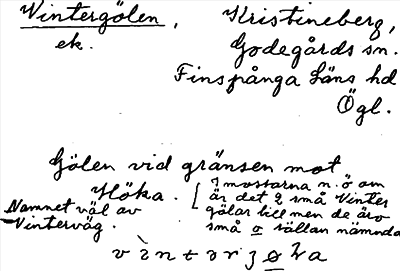 Vintergölen, Kristineberg,
ek. Godegårds sn.
Finspånga läns hd
Ögl.
Gölen vid gränsen mot
Höka. [I mossarna n. ö om
är det 2 små Vinter
gölar till men de äro
små o sällan nämnda
Namnet väl av
Vinterväg.